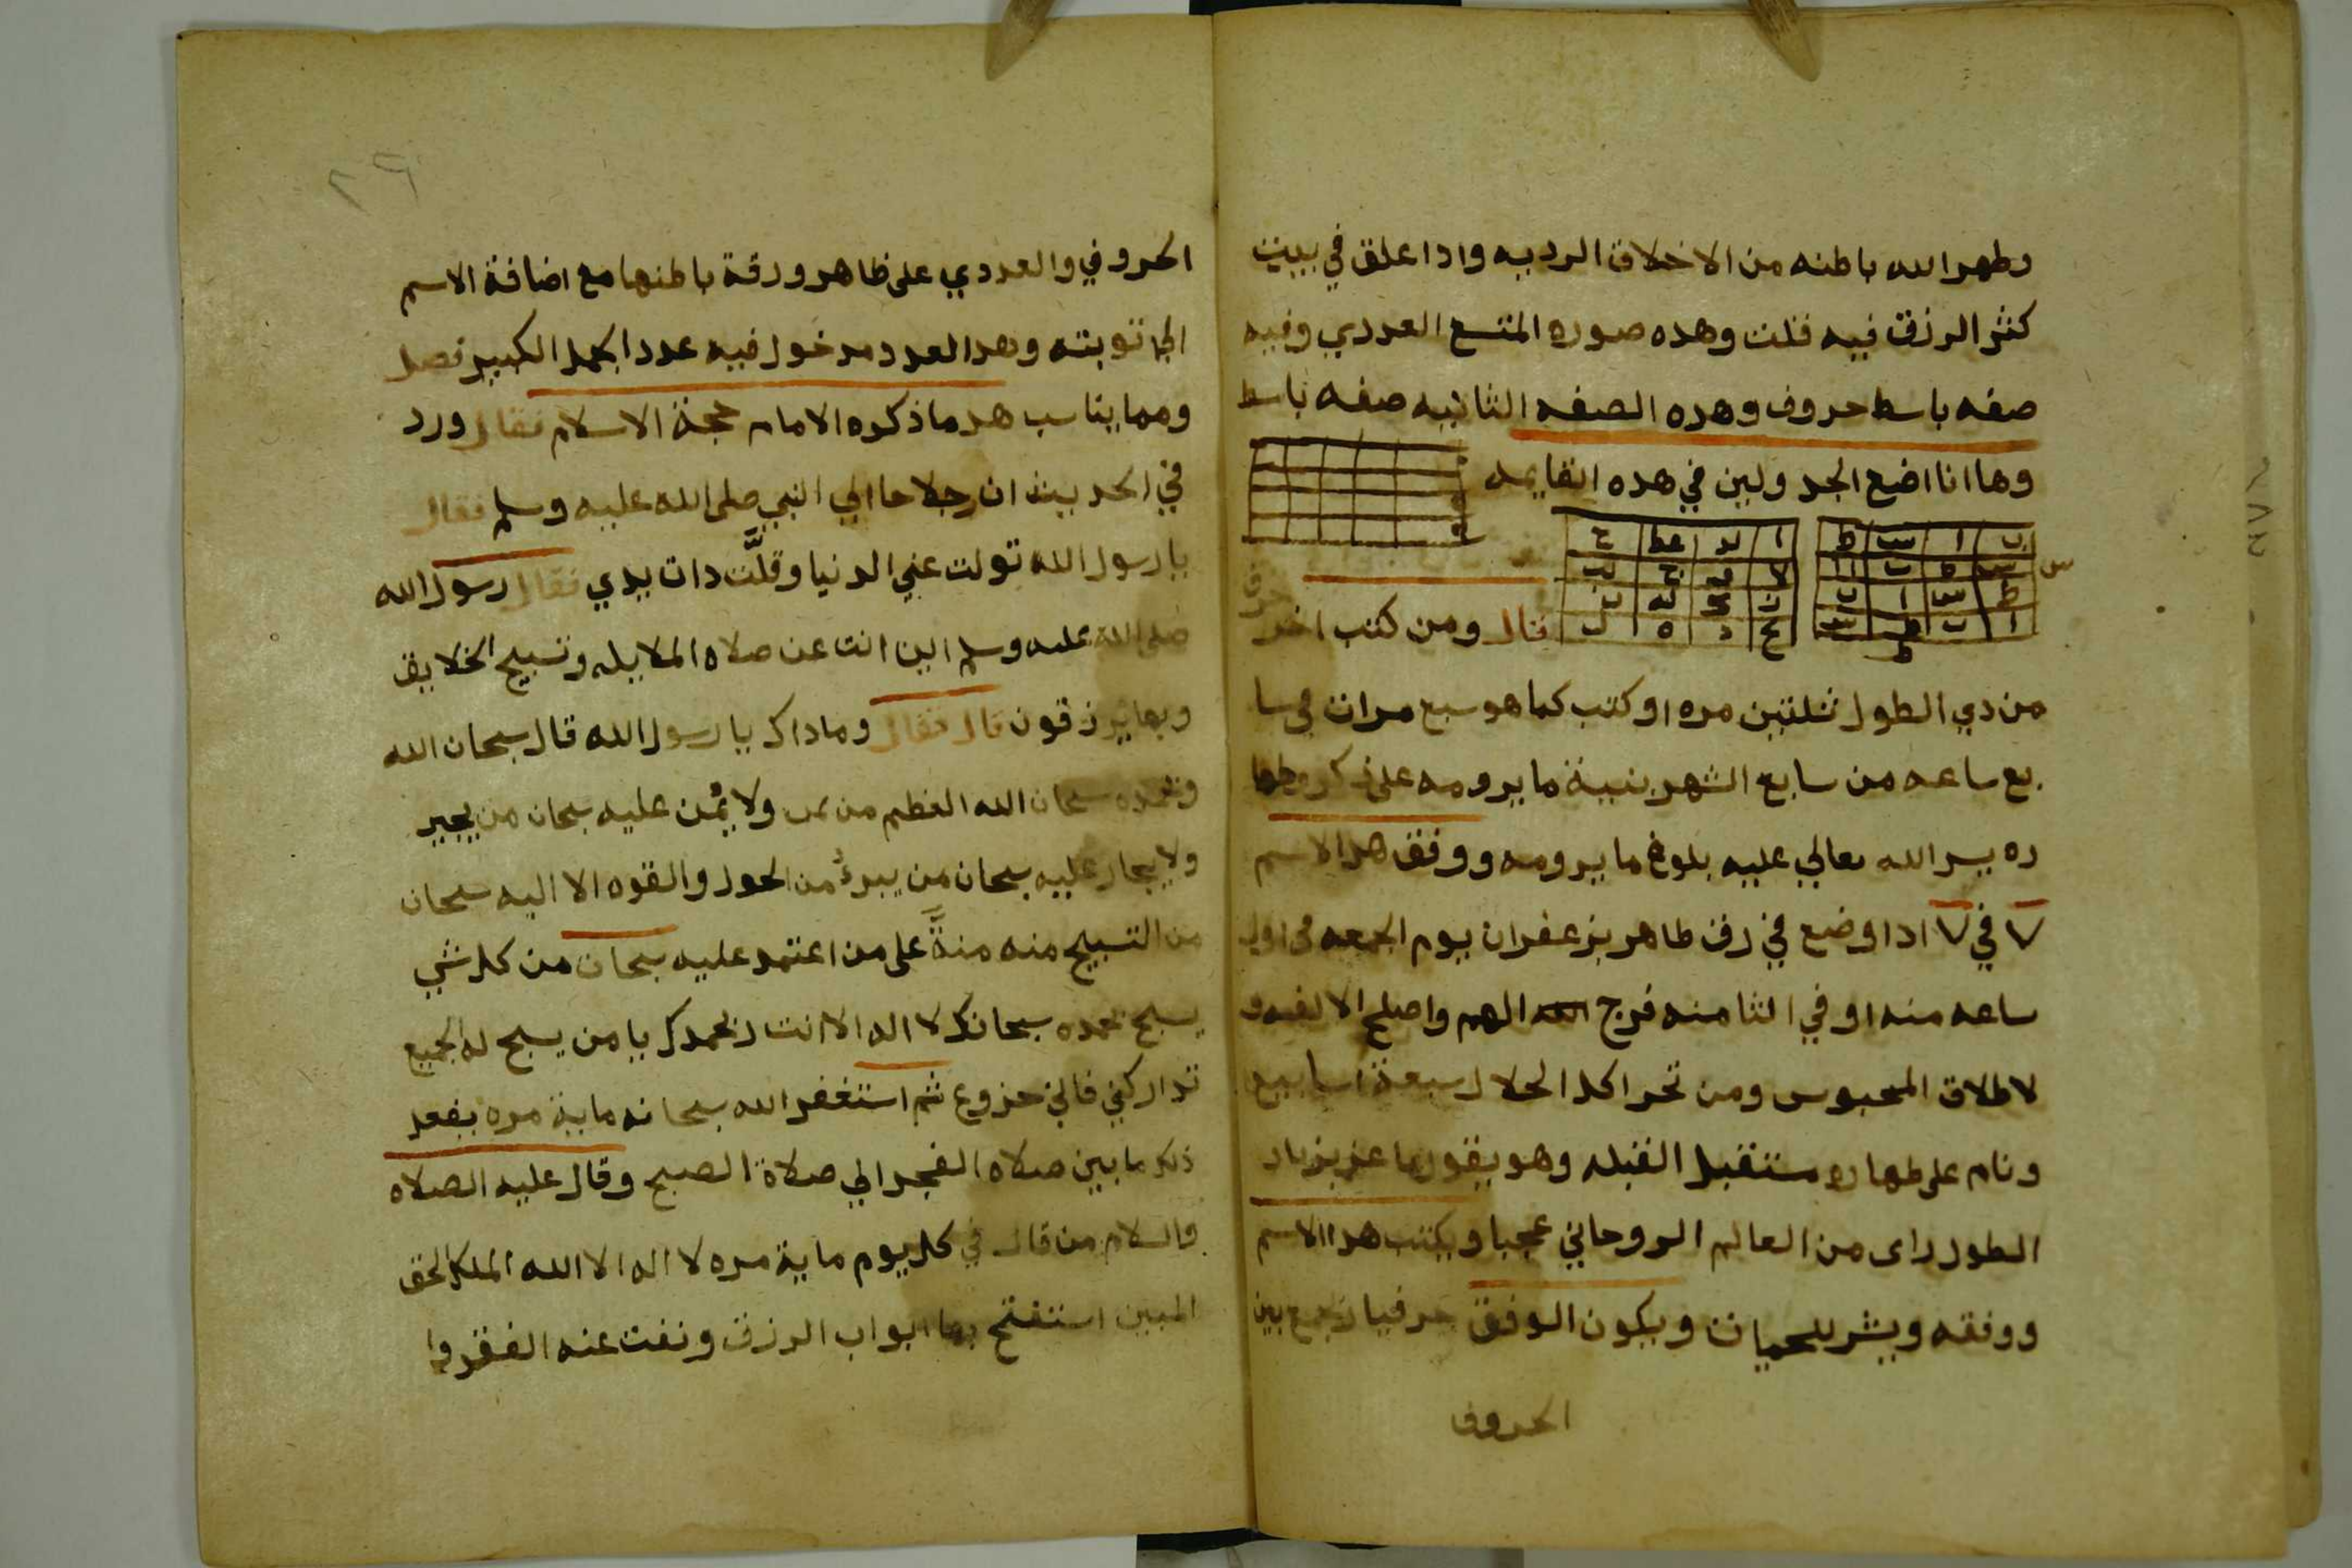 وطهر الله باطنه من الاخلاق الرديه واذا علق في بيت
كثر الرزق فيه قلت وهذه صوره المتسع العددي وفيه
صفه باسط حروف وهذه الصفه الثانيه صفه باسط
وها انا اضع الجدولين في هذه القايمه
ب ا س ط
س ط ب ا
ط س ا ب
ا ب ط س
قال ومن كتب اخر حرف
من ذي الطول ثلثين مره او كتب كما هو سبع مرات في سا
بع ساعه من سابع الشهر بنية ما يرومه على ذكر وطها
ره يسر الله تعالي عليه بلوغ ما يرومه ووفق هدا الاسم
٧ في ٧ ادا وضع في رق طاهر بزعفران يوم الجمعه في اول
ساعه منه او في الثامنه فرج الهم واصلح الالفه و
لاطلاق المحبوس ومن تحرا اكل الحلال سبعة اسابيع
ونام على طهاره مستقبل القبله وهو يقول يا عزيز ياد
الطول راى من العالم الروحاني عجبا ويكتب هدا الاسم
ووفقه ويشر للحميات ويكون الوفق حرفيا ن‍جمع بين
الحروف
٢٩
الحروفي والعددي على ظاهر ورقة باطنها مع اضافة الاسم
الي توبته وهدا العدد مدخول فيه عدد الجمل الكبير فصل
ومما يناسب هدا ما ذكره الامام حجة الاسلام فقال ورد
في الحديث ان رجلا جا الي النبي صلى الله عليه وسلم فقال
يا رسول الله تولت عني الدنيا وقلَّت دات يدي فقال رسول الله
صلى الله عليه وسلم اين انت عن صلاه الملايكه وتسبيح الخلايق
وبها يرزقون قال فقال وما داك يا رسول الله قال سبحان الله
وبحمده سبحان الله العظيم من يمن ولا يُمن عليه سبحان من يجير
ولا يجار عليه سبحان من يبرءُ من الحول والقوه الا اليه سبحان
من التسبيح منه منةً على من اعتمد عليه سبحان من كل شي
يسبح بحمده سبحانك لا اله الا انت وبحمدك يا من يسبح له الجميع
تداركني فاني جزوع ثم استغفر الله سبحانه ماية مره يفعل
ذلك ما بين صلاه الفجر الي صلاة الصبح وقال عليه الصلاه
والسلام من قال في كل يوم ماية مره لا اله الا الله الملك الحق
المبين استفتح بها ابواب الرزق ونفت عنه الفقر وا